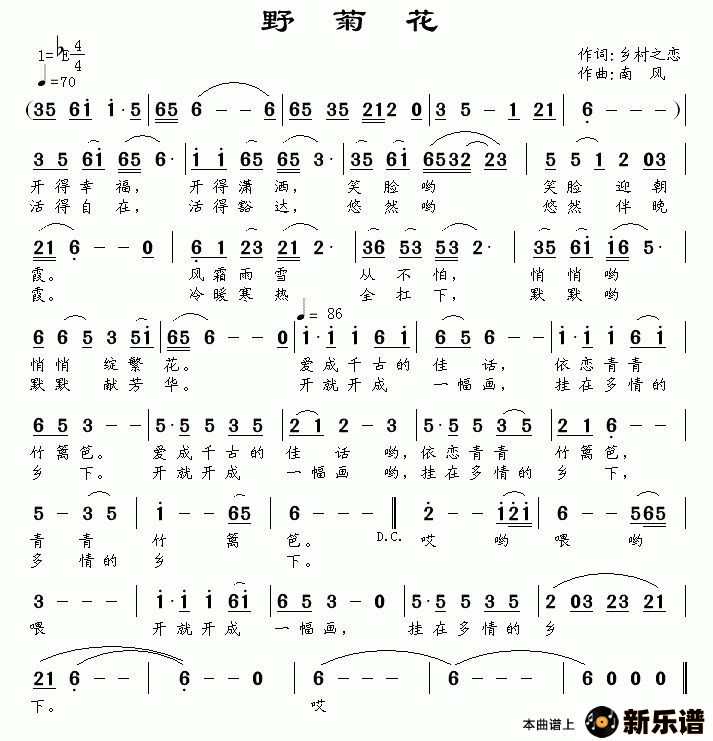 野 菊 花
1=♭E 4/4
♩=70
作词:乡村之恋
作曲:南 风
(35 6i i·5 | 65 6 - - 6 | 65 35 212 0 | 3 5 - 1 21 | 6 - - - )|
3 5 6i 65 6· | i i 65 65 3· | 35 6i 6532 23 | 5 5 1 2 03 |
开得幸福, 开得潇洒, 笑脸哟 笑脸 迎朝
活得自在, 活得豁达, 悠然哟 悠然 伴晚
21 6 - - 0 | 6 1 23 21 2· | 36 53 53 2· | 35 6i i6 5· |
霞。 风霜雨雪 从不怕, 悄悄哟
霞。 冷暖寒热 全扛下, 默默哟
♩= 86
6 6 5 3 5i | 65 6 - - 0 | i·i i 6 i | 6 5 - 6 | i·i i 6 i |
悄悄 绽繁花。 爱成千古的 佳 话, 依恋青青
默默 献芳华。 开就开成 一幅画, 挂在多情的
6 5 3 - | 5·5 5 3 5 | 2 1 2 - 3 | 5·5 5 3 5 | 2 1 6 - |
竹篱笆。 爱成千古的 佳 话 哟,依恋青青 竹篱笆,
乡 下。 开就开成 一幅画 哟,挂在多情的 乡 下,
5 - 3 5 | i - - 65 | 6 - - - ‖ 2 - - i2i | 6 - - 565 |
D.C.
青 青 竹 篱 笆。 哎 哟 喂 哟
多 情的 乡 下。
3 - - - | i·i i 6i | 6 5 3 - 0 | 5·5 5 3 5 | 2 03 23 21 |
喂 开就开成 一幅画, 挂在多情的 乡
21 6 - - | 6 - - 0 | 6 - - - | 6 - - - | 6 0 0 0 ‖
下。 哎
本曲谱上 新乐谱